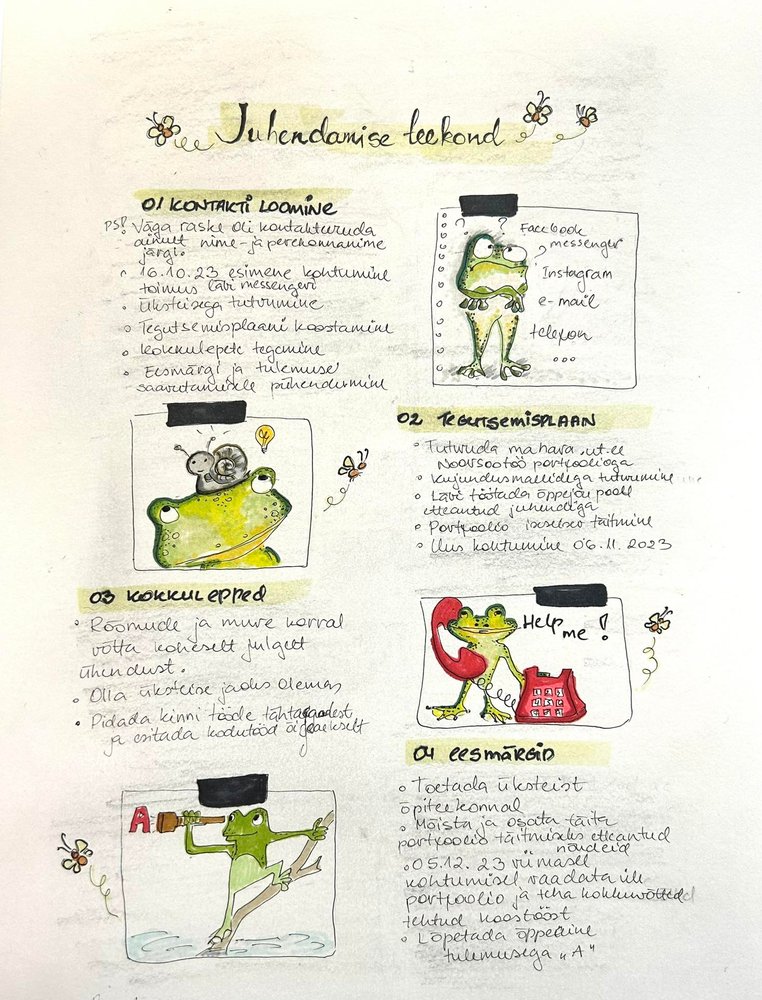 Juhendamise teekond
01 KONTAKTI LOOMINE
PS! Väga raske oli kontakteeruda
ainult nime- ja perekonnanime
järgi.
16.10.23 esimene kohtumine
toimus läbi messengeri
Üksteisega tutvumine
Tegutsemisplaani koostamine
Kokkulepete tegemine
Eesmärgi ja tulemuse
saavutamisele pühendumine
? ?
Facebook
messenger
Instagram
e-mail
telefon
...
02 TEGUTSEMISPLAAN
Tutvuda mahara.ut.ee
Noorsootöö portfoolioga
Kujundusmallidega tutvumine
Läbi töötada õppejõu poolt
etteantud juhendiga
Portfoolio iseseisev täitmine
Uus kohtumine 06.11.2023
03 KOKKULEPPED
Rõõmude ja mure korral
võtta koheselt julgelt
ühendust.
Olla üksteise jaoks olemas
Pidada kinni tööde tähtaegadest
ja esitada kodutööd õigeaegselt
Help
me!
1 2 3
04 EESMÄRGID
Toetada üksteist
õpiteekonnal
Mõista ja osata täita
portfoolio täitmiseks etteantud
nõudeid
05.12.23 viimasel
kohtumisel vaadata üle
portfoolio ja teha kokkuvõtted
tehtud koostööst
Lõpetada õppeaine
tulemusega „A"
A